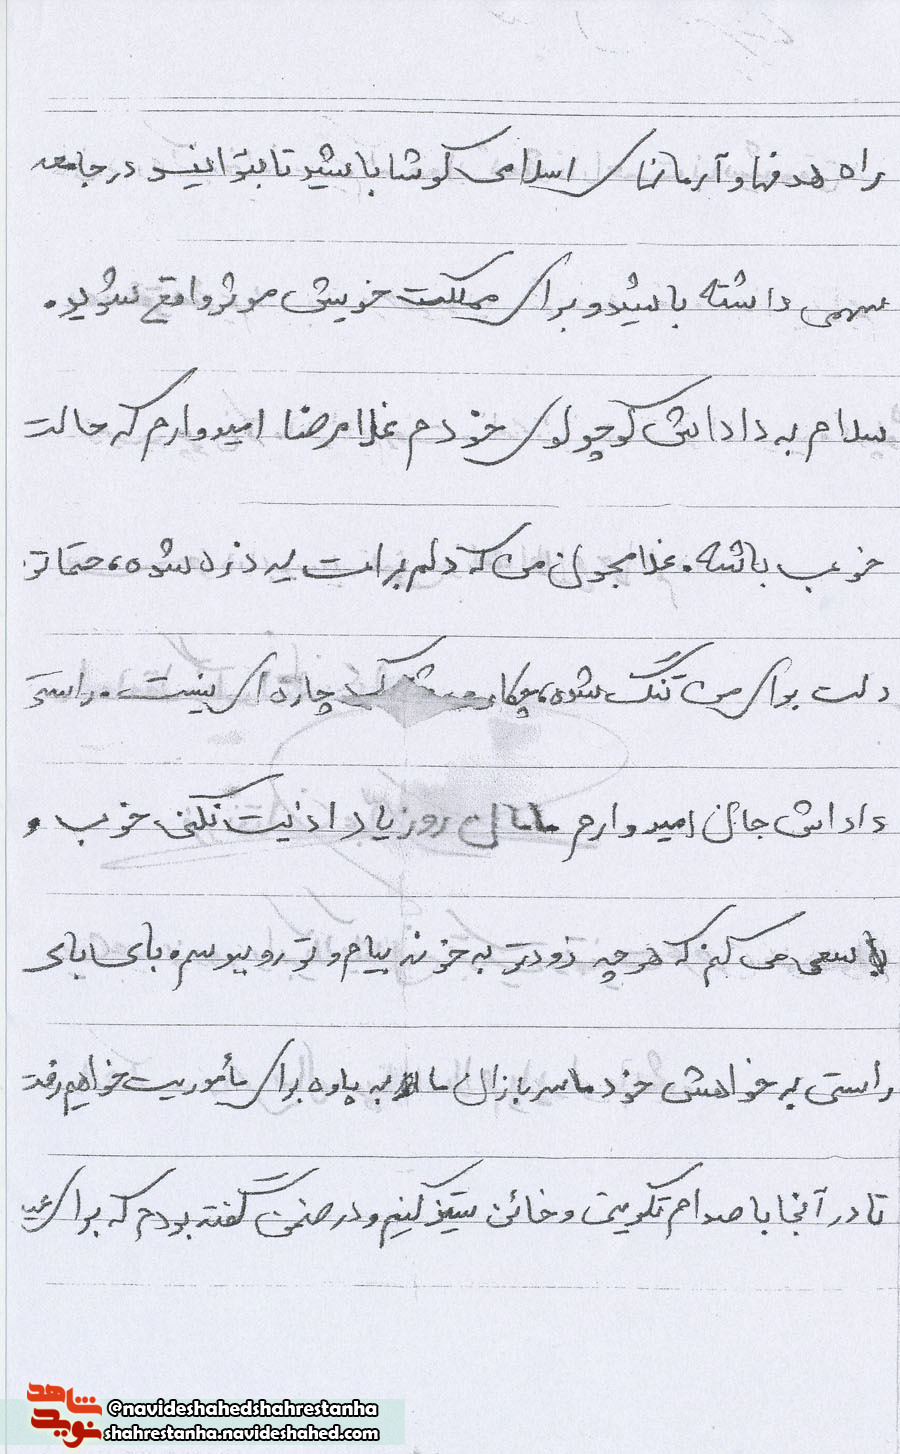 راه هدفها و آرمانهای اسلامی کوشا باشید تا بتوانید در جامعه
سهمی داشته باشید و برای مملکت خویش موثر واقع شوید.
سلام به داداش کوچولوی خودم غلامرضا امیدوارم که حالت
خوب باشه. غلامجون من که دلم برات یه ذره شده، حتما تو
دلت برای من تنگ شده، چکار چاره ای نیست. راستی
داداش جان امیدوارم مامان رو زیاد اذیت نکنی خوب و
سعی می کنم که هر چه زودتر به خونه بیام و تو رو ببوسم بای بای
راستی به خواهش خود ما سربازان ما به پاوه برای مأموریت خواهیم رفت
تا در آنجا با صدام تکریتی و خائن ستیز کنیم و در ضمن گفته بودم که برای
شاهد
نوید
@navideshahedshahrestanha
shahrestanha.navideshahed.com